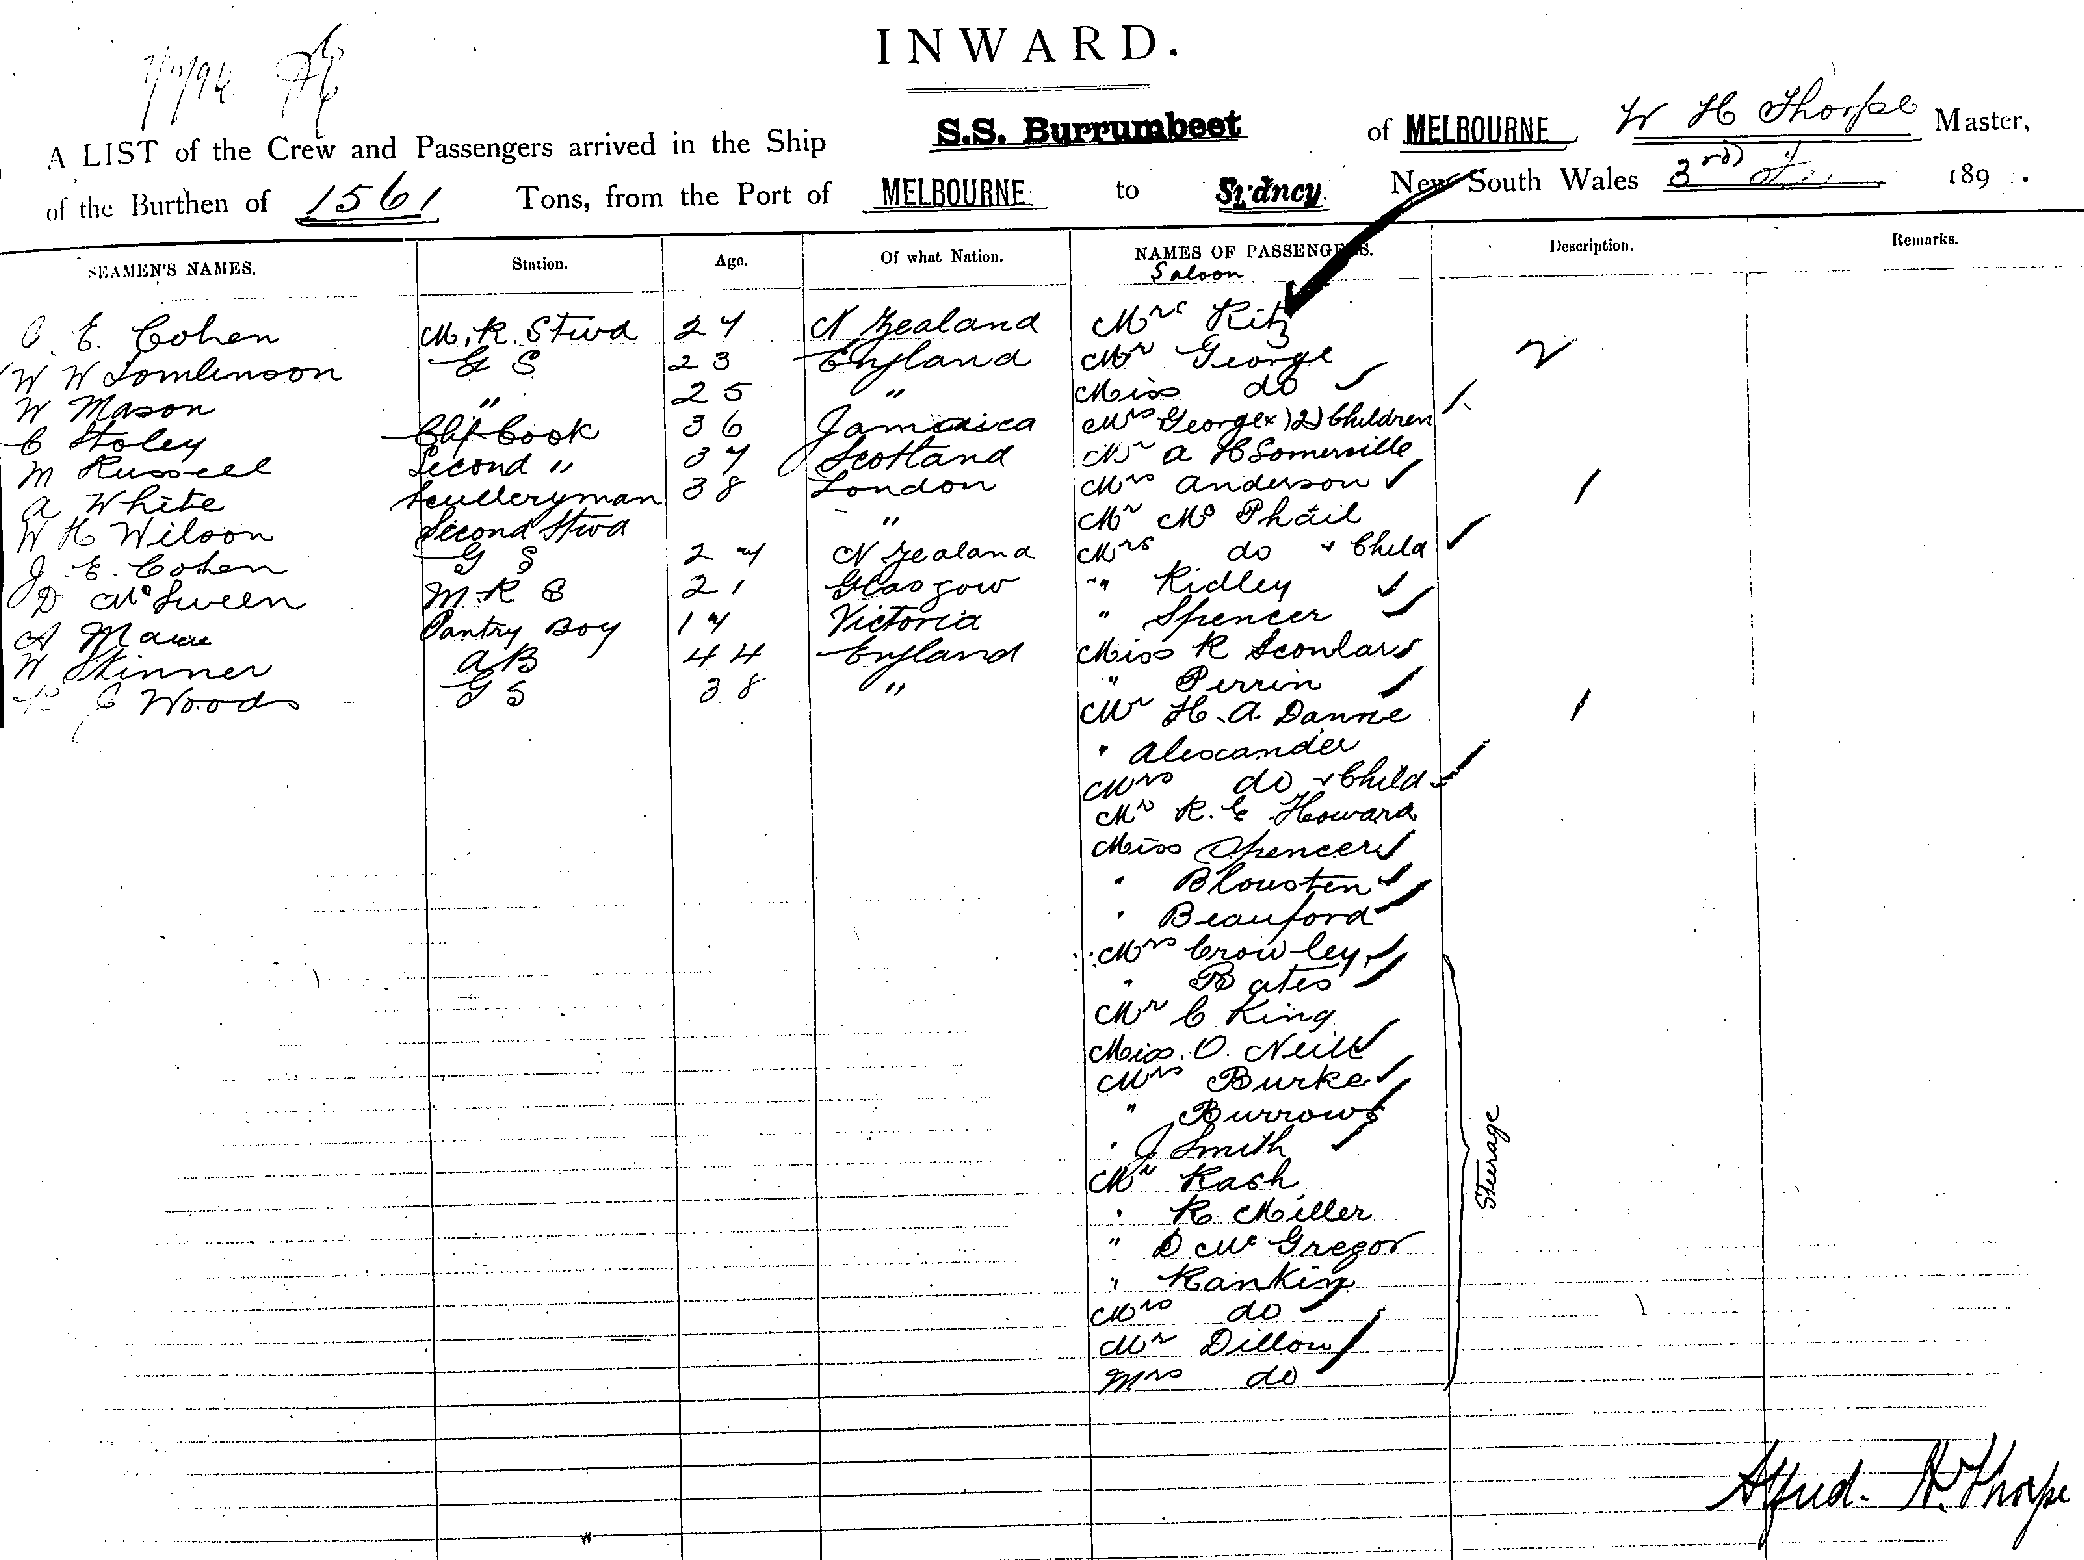 INWARD.
7/7/94
A LIST of the Crew and Passengers arrived in the Ship S.S. Burrumbeet of MELBOURNE W H Thorpe Master,
of the Burthen of 1561 Tons, from the Port of MELBOURNE to Sydney New South Wales 3rd 189 .
SEAMEN'S NAMES. Station. Age. Of what Nation. NAMES OF PASSENGERS. Description. Remarks.
Saloon
E. Cohen M. R. Stwd 27 N Zealand Mrs Ritz
W W Tomlinson G S 23 England Mr George
W Mason " 25 " Miss do
C Stoley Chf Cook 36 Jamaica Mrs George & 2 Children
M Russell Second " 37 Scotland Mr A H Somerville
A White Sculleryman 38 London Mrs Anderson
W H Wilson Second Stwd " Mr Mc Phail
J. E. Cohen G S 27 N Zealand Mrs do & Child
D McSween M R S 21 Glasgow " Ridley
A Pantry Boy 17 Victoria " Spencer
W Skinner AB 44 England Miss R Scoular
J Woods G S 38 " " Perrin
Mr H. A. Danne
" Alexander
Mrs do & Child
Mr R. E Howard
Miss Spencer
" Blousten
" Beauford
Mrs Crowley
" Bates
Mr C King
Miss O. Neill
Mrs Burke
" Burrows
" J Smith
Mr Kash
" R Miller
" D McGregor
" Rankin
Mrs do
Mr Dillon
Mrs do
Steerage
Alfred. H. Thorpe